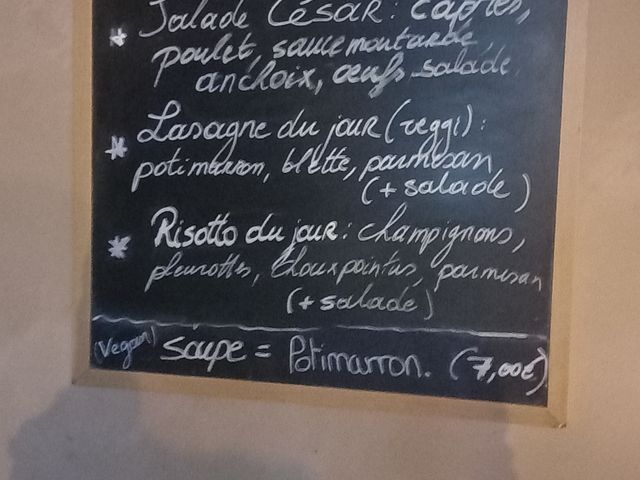 * Salade César : câpres,
poulet, sauce moutarde
anchoix, œufs, salade.
* Lasagne du jour (veggi) :
potimarron, blette, parmesan
(+ salade)
* Risotto du jour : champignons,
pleurottes, choux pointus, parmesan
(+ salade)
(Vegan) Soupe = Potimarron. (7,00€)